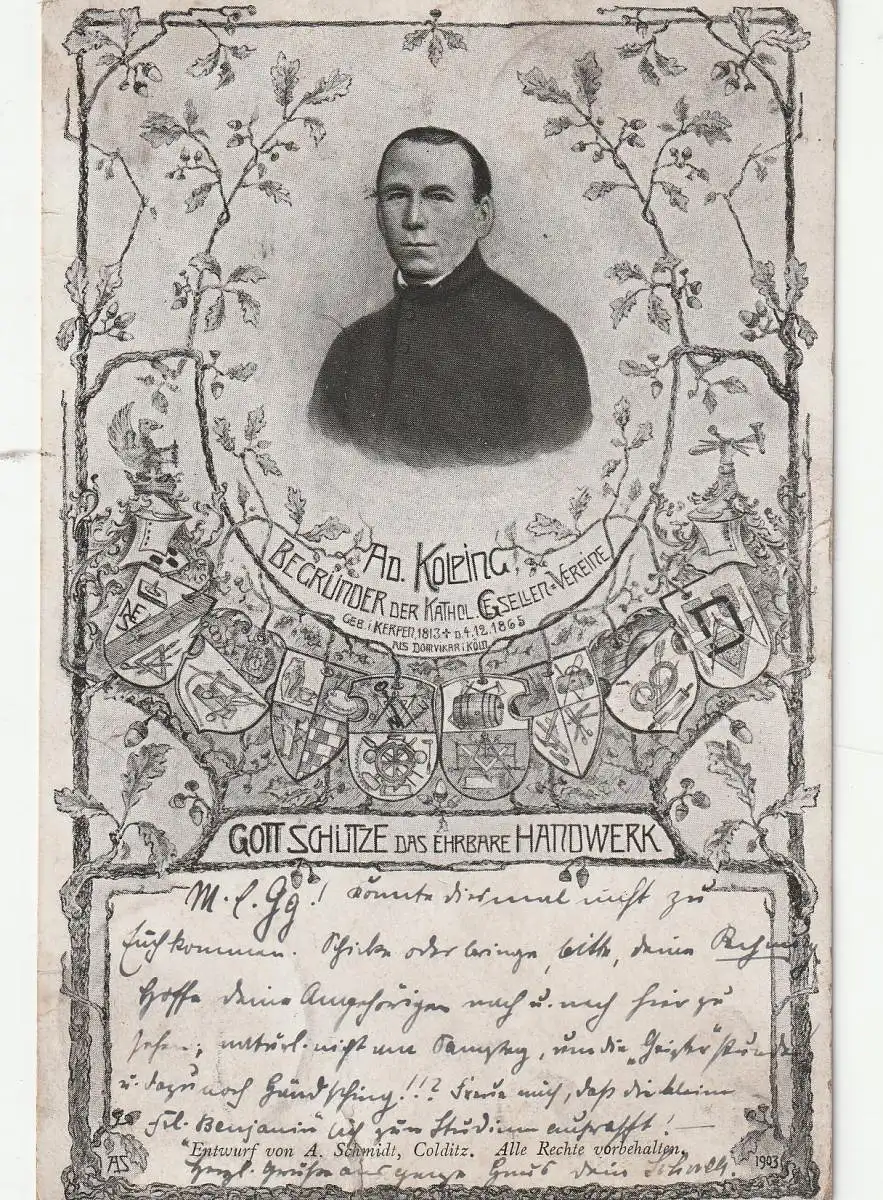 AD. KOLPING
BEGRÜNDER DER KATHOL. GESELLEN-VEREINE
GEB. i. KERPEN, 1813 + D. 4.12.1865
ALS DOMVIKAR i. KÖLN
GOTT SCHÜTZE DAS EHRBARE HANDWERK
M. l. Gg! Konnte diesmal nicht zu
Euch kommen. Schicke oder bringe, bitte, deine
Hoffe deine Angehörigen nach u. nach hier zu
sehen; natürl. nicht am Samstag, um die "Geister"stunde
u. dazu noch Händsching!!? Freue mich, daß die kleine
Frl. Benjamin sich zum Studium aufrafft! —
Entwurf von A. Schmidt, Colditz. Alle Rechte vorbehalten.
AS
1903
Herzl. Grüße aus ganze Haus Dein